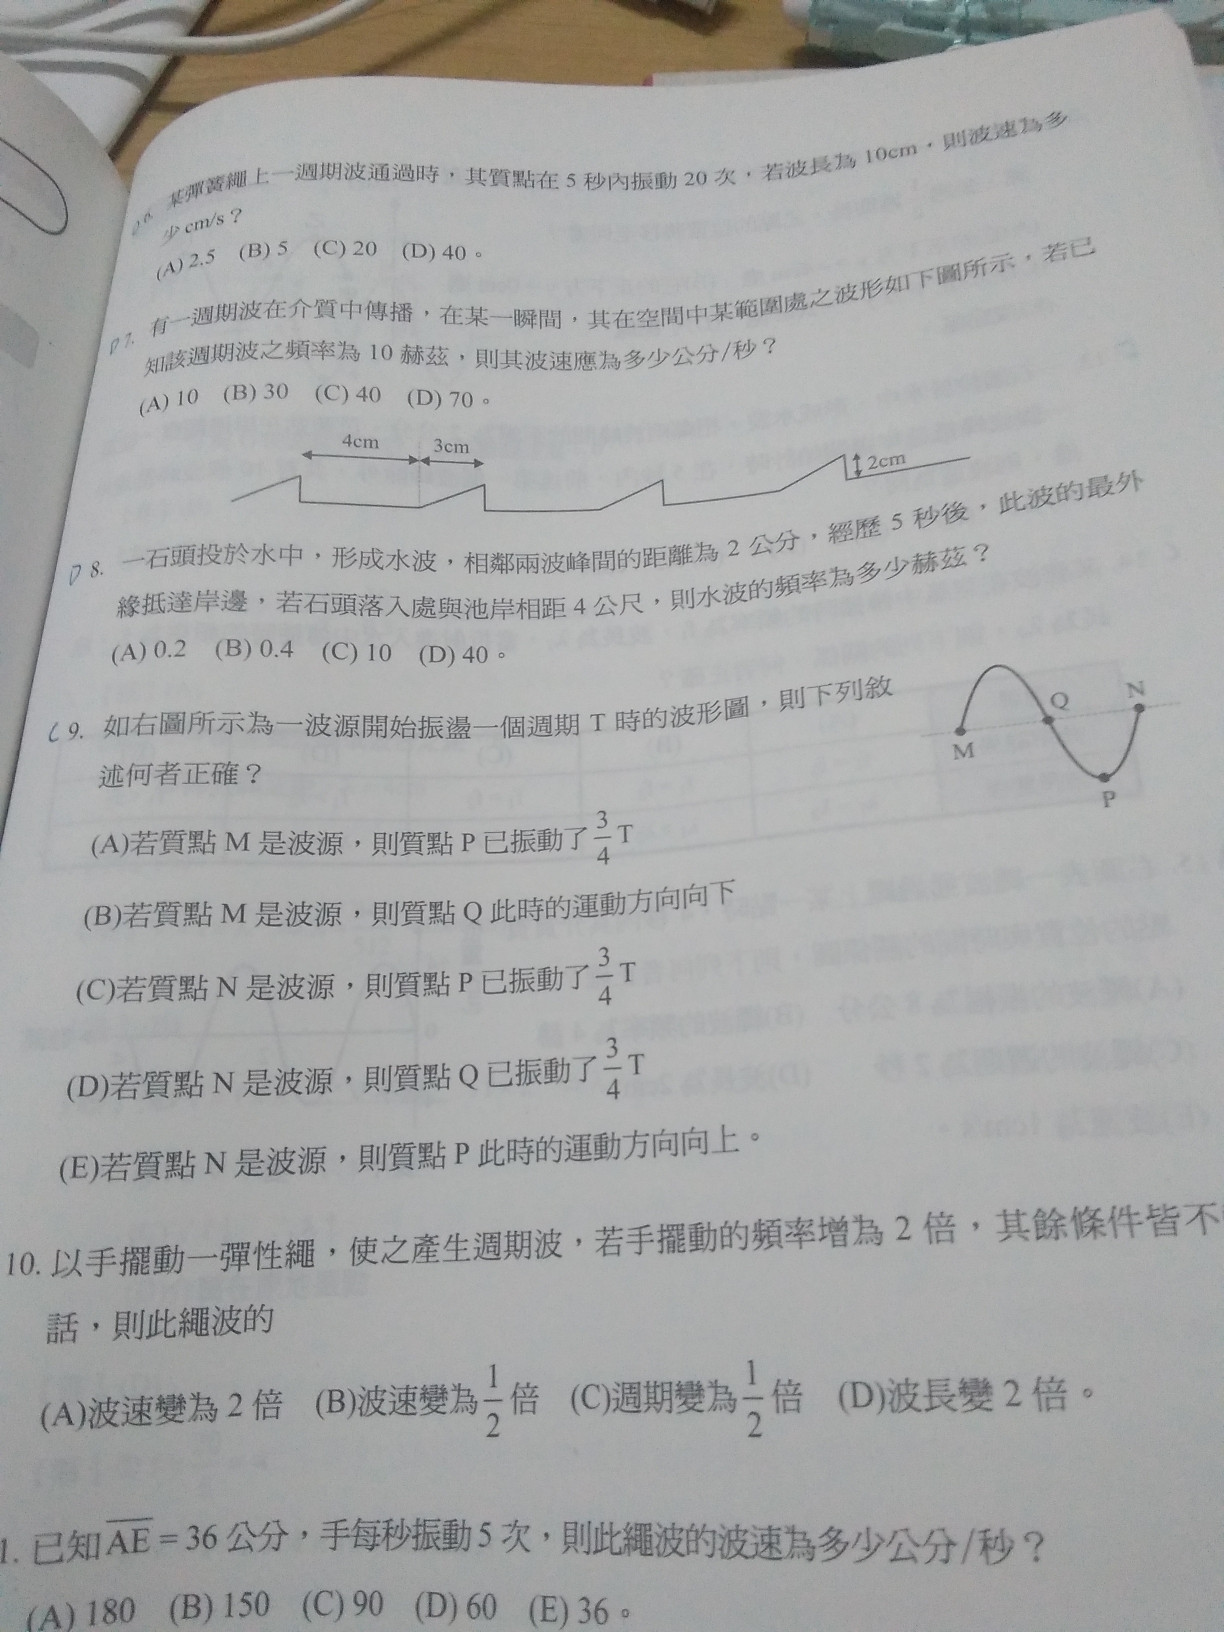 D 6. 某彈簧繩上一週期波通過時，其質點在 5 秒內振動 20 次，若波長為 10cm，則波速為多
少 cm/s？
(A) 2.5 (B) 5 (C) 20 (D) 40。
D 7. 有一週期波在介質中傳播，在某一瞬間，其在空間中某範圍處之波形如下圖所示，若已
知該週期波之頻率為 10 赫茲，則其波速應為多少公分/秒？
(A) 10 (B) 30 (C) 40 (D) 70。
4cm 3cm
2cm
D 8. 一石頭投於水中，形成水波，相鄰兩波峰間的距離為 2 公分，經歷 5 秒後，此波的最外
緣抵達岸邊，若石頭落入處與池岸相距 4 公尺，則水波的頻率為多少赫茲？
(A) 0.2 (B) 0.4 (C) 10 (D) 40。
C 9. 如右圖所示為一波源開始振盪一個週期 T 時的波形圖，則下列敘
述何者正確？
M Q N
P
(A)若質點 M 是波源，則質點 P 已振動了 3/4 T
(B)若質點 M 是波源，則質點 Q 此時的運動方向向下
(C)若質點 N 是波源，則質點 P 已振動了 3/4 T
(D)若質點 N 是波源，則質點 Q 已振動了 3/4 T
(E)若質點 N 是波源，則質點 P 此時的運動方向向上。
10. 以手擺動一彈性繩，使之產生週期波，若手擺動的頻率增為 2 倍，其餘條件皆不
話，則此繩波的
(A)波速變為 2 倍 (B)波速變為 1/2 倍 (C)週期變為 1/2 倍 (D)波長變 2 倍。
1. 已知 A̅E̅ = 36 公分，手每秒振動 5 次，則此繩波的波速為多少公分/秒？
(A) 180 (B) 150 (C) 90 (D) 60 (E) 36。